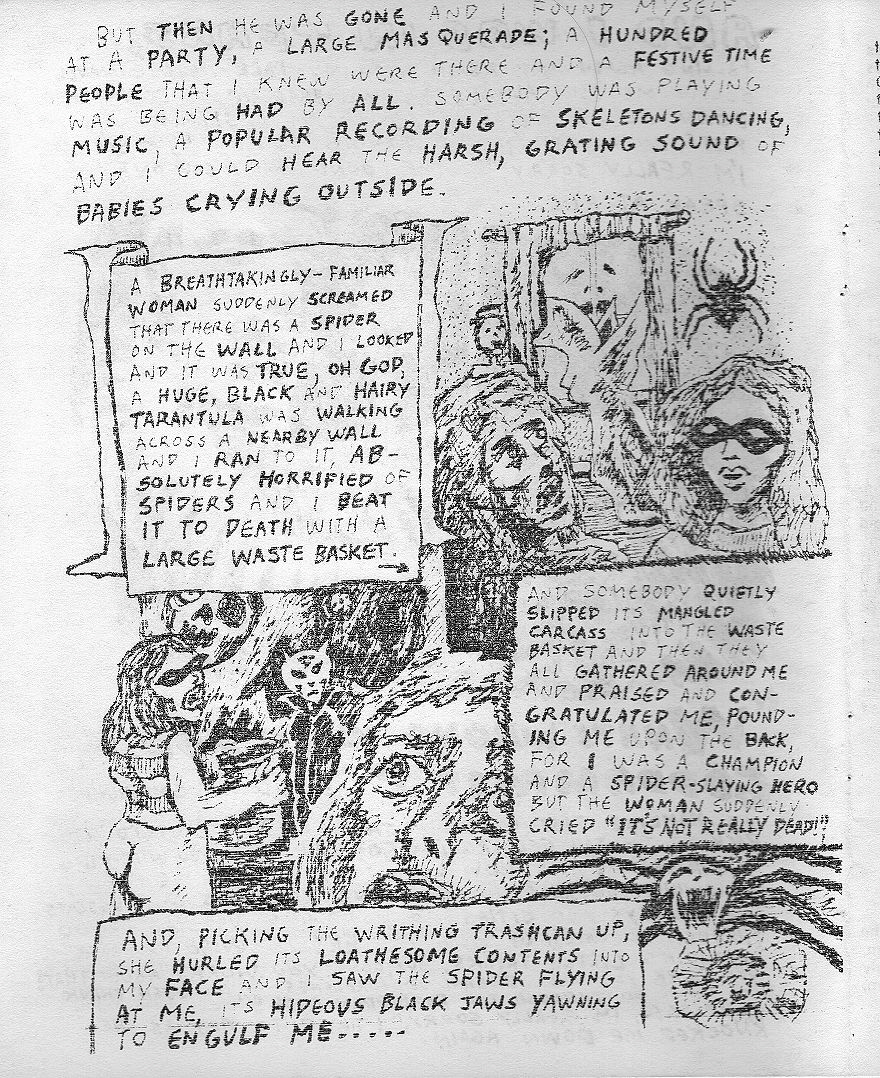 BUT THEN HE WAS GONE AND I FOUND MYSELF
AT A PARTY, A LARGE MASQUERADE; A HUNDRED
PEOPLE THAT I KNEW WERE THERE AND A FESTIVE TIME
WAS BEING HAD BY ALL. SOMEBODY WAS PLAYING
MUSIC, A POPULAR RECORDING OF SKELETONS DANCING,
AND I COULD HEAR THE HARSH, GRATING SOUND OF
BABIES CRYING OUTSIDE.
A BREATHTAKINGLY-FAMILIAR
WOMAN SUDDENLY SCREAMED
THAT THERE WAS A SPIDER
ON THE WALL AND I LOOKED
AND IT WAS TRUE, OH GOD,
A HUGE, BLACK AND HAIRY
TARANTULA WAS WALKING
ACROSS A NEARBY WALL
AND I RAN TO IT, AB-
SOLUTELY HORRIFIED OF
SPIDERS AND I BEAT
IT TO DEATH WITH A
LARGE WASTE BASKET.
AND SOMEBODY QUIETLY
SLIPPED ITS MANGLED
CARCASS INTO THE WASTE
BASKET AND THEN THEY
ALL GATHERED AROUND ME
AND PRAISED AND CON-
GRATULATED ME, POUND-
ING ME UPON THE BACK,
FOR I WAS A CHAMPION
AND A SPIDER-SLAYING HERO
BUT THE WOMAN SUDDENLY
CRIED "IT'S NOT REALLY DEAD!"
AND, PICKING THE WRITHING TRASHCAN UP,
SHE HURLED ITS LOATHESOME CONTENTS INTO
MY FACE AND I SAW THE SPIDER FLYING
AT ME, ITS HIDEOUS BLACK JAWS YAWNING
TO ENGULF ME-----